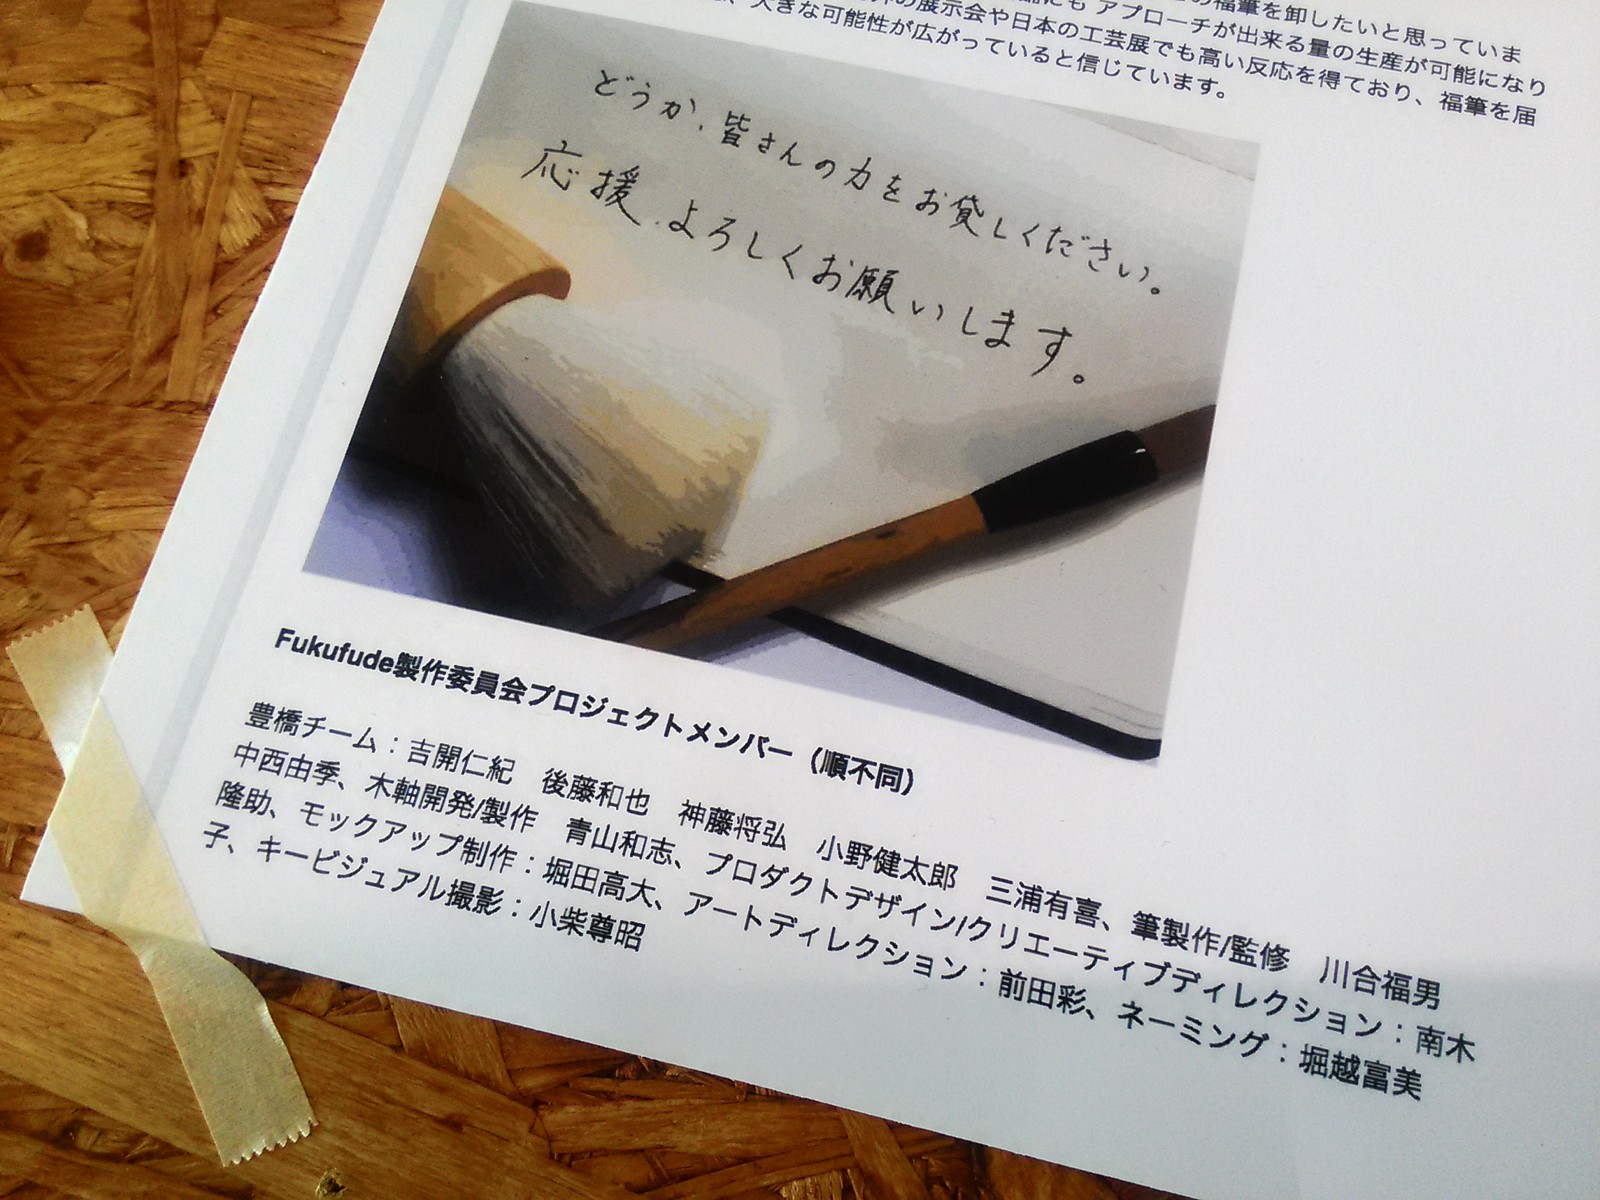 福筆を卸したいと思っていま
にも アプローチが出来る量の生産が可能になり
の展示会や日本の工芸展でも高い反応を得ており、福筆を届
、大きな可能性が広がっていると信じています。
どうか、皆さんの力をお貸しください。
応援、よろしくお願いします。
Fukufude製作委員会プロジェクトメンバー（順不同）
豊橋チーム：吉開仁紀　後藤和也　神藤将弘　小野健太郎　三浦有喜、筆製作/監修　川合福男
中西由季、木軸開発/製作　青山和志、プロダクトデザイン/クリエーティブディレクション：南木
隆助、モックアップ制作：堀田高大、アートディレクション：前田彩、ネーミング：堀越富美
子、キービジュアル撮影：小柴尊昭